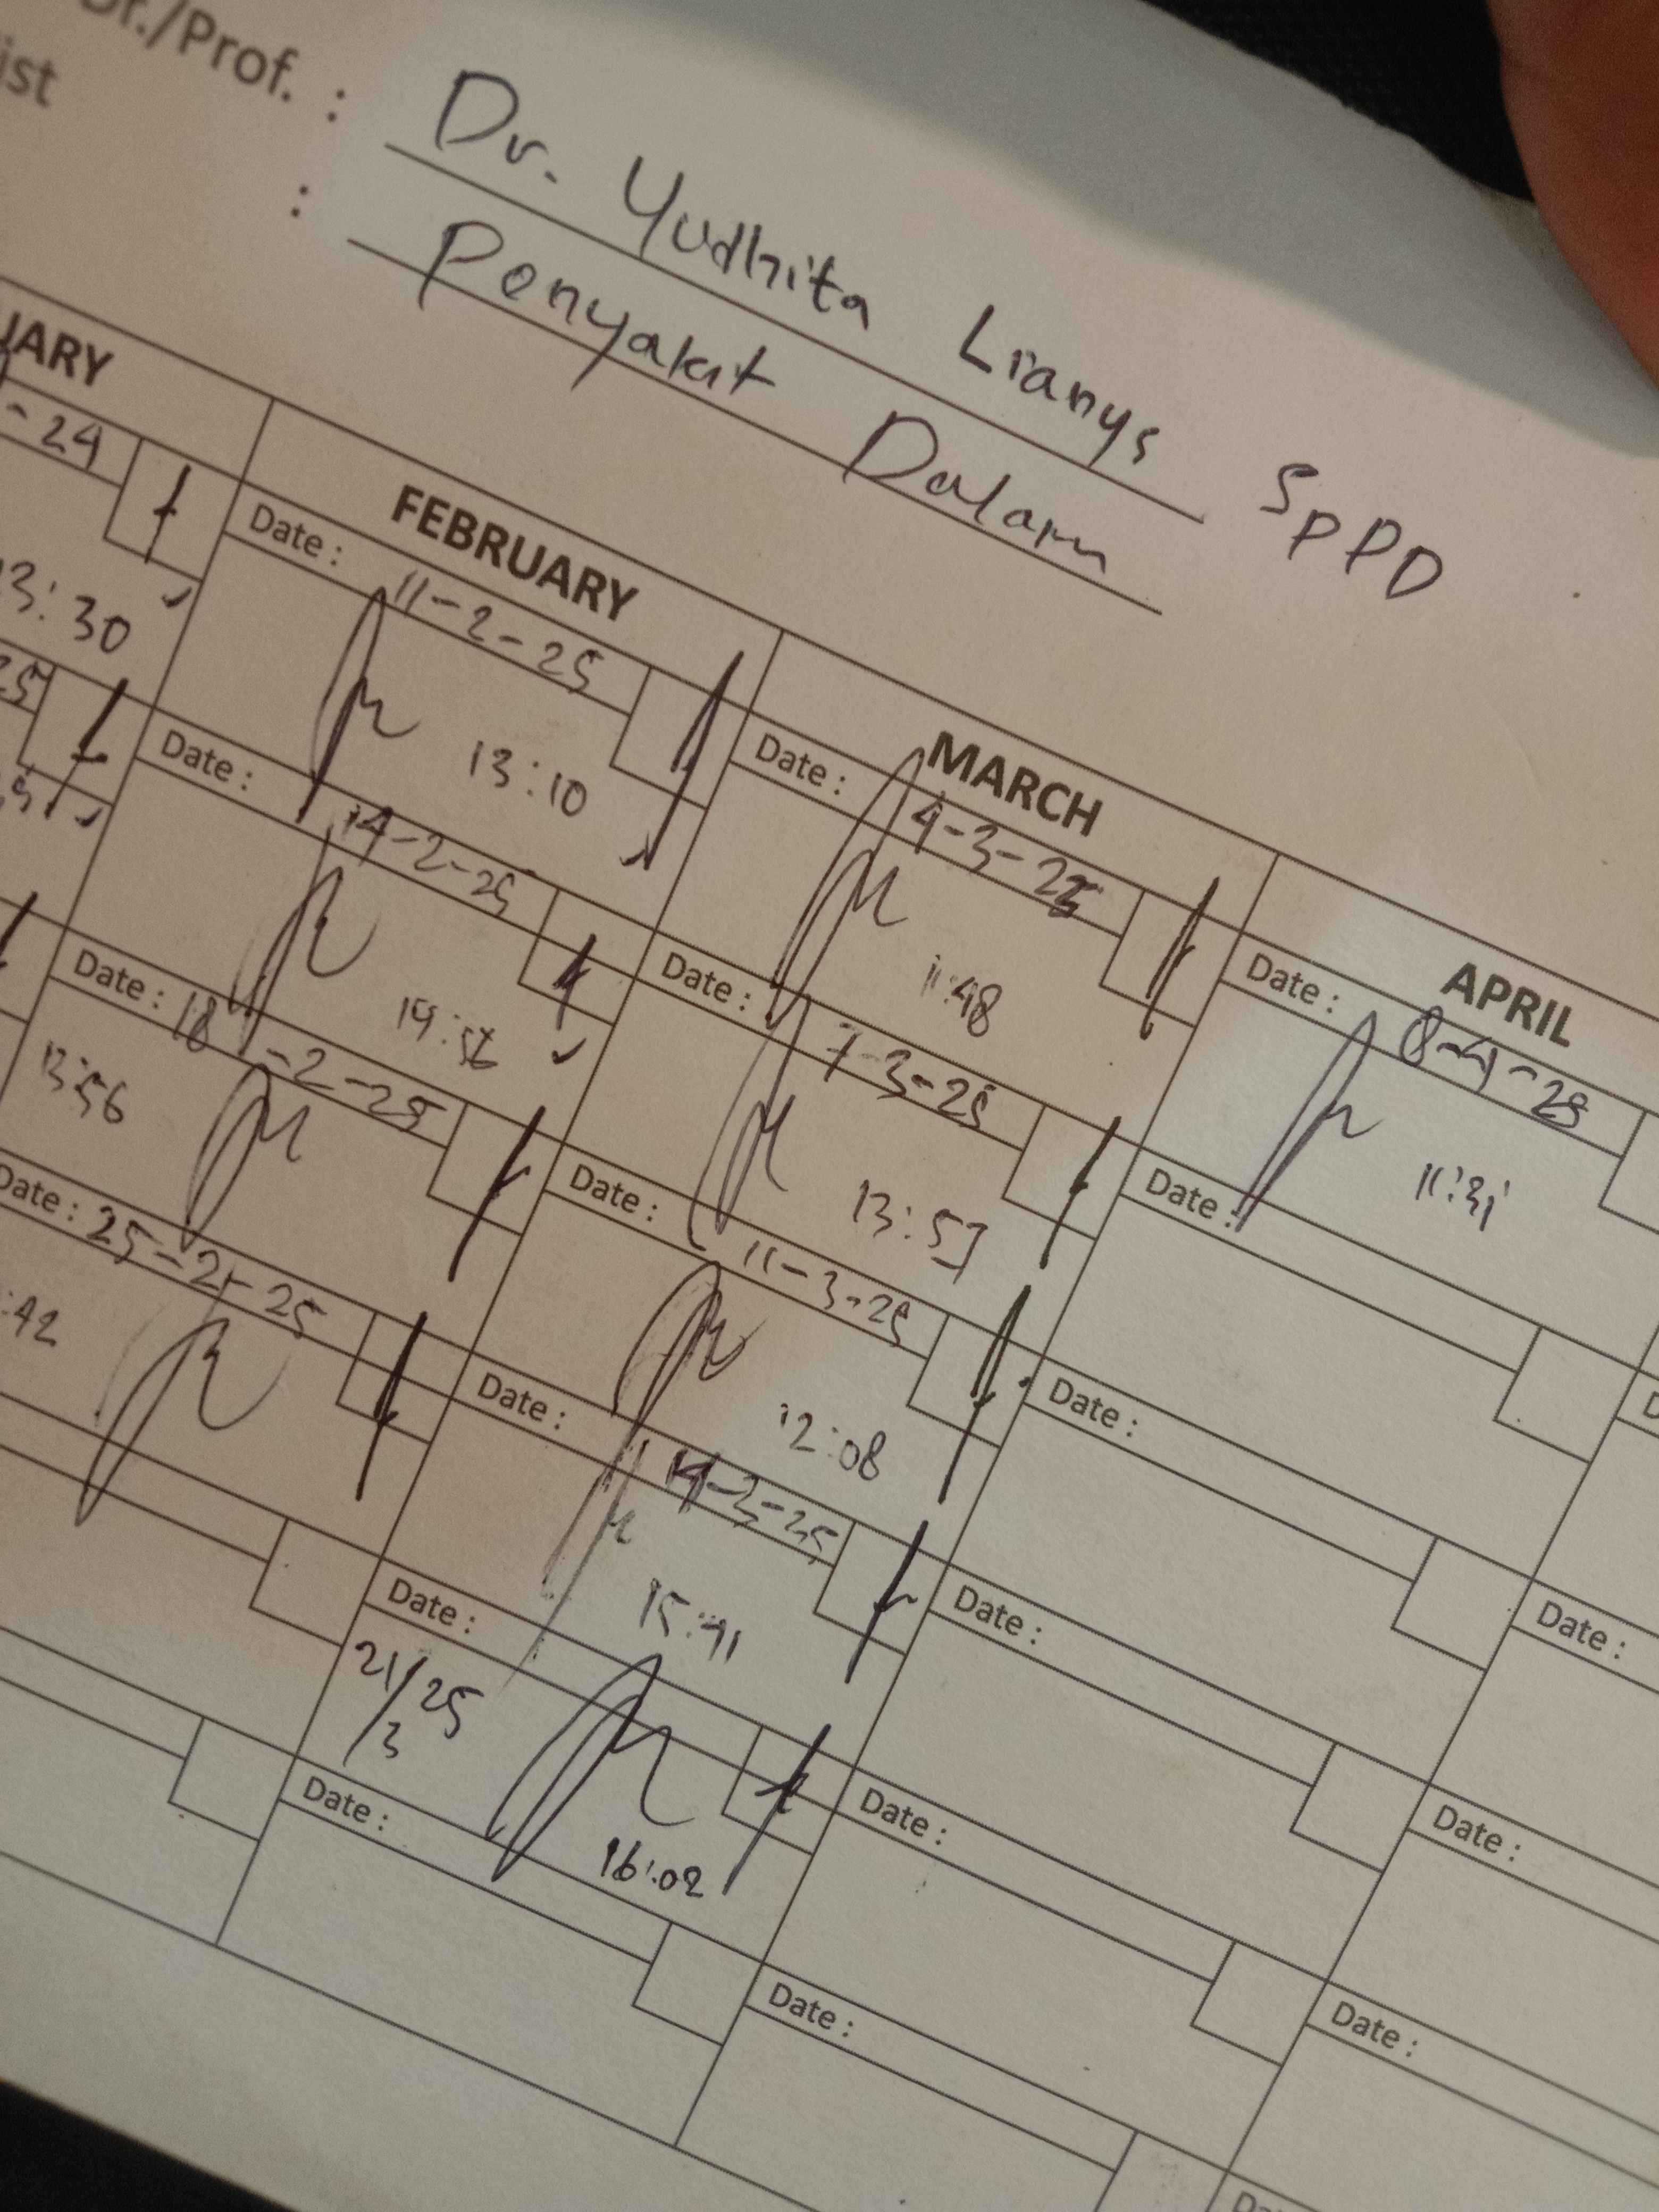 Dr./Prof. : Dr. Yudhita Lianys SpPD
ist : Penyakit Dalam
FEBRUARY
MARCH
APRIL
- 24
3:30
Date : 11-2-25
13:10
Date : 14-2-25
Date : 18-2-25
13:56
Date : 25-2-25
:42
Date : 4-3-25
11:48
Date : 7-3-25
13:57
Date : 11-3-25
12:08
Date : 14-3-25
15:41
Date :
21/3 25
16:02
Date :
Date : 8-4-25
11:31
Date :
Date :
Date :
Date :
Date :
Date :
Date :
Date :